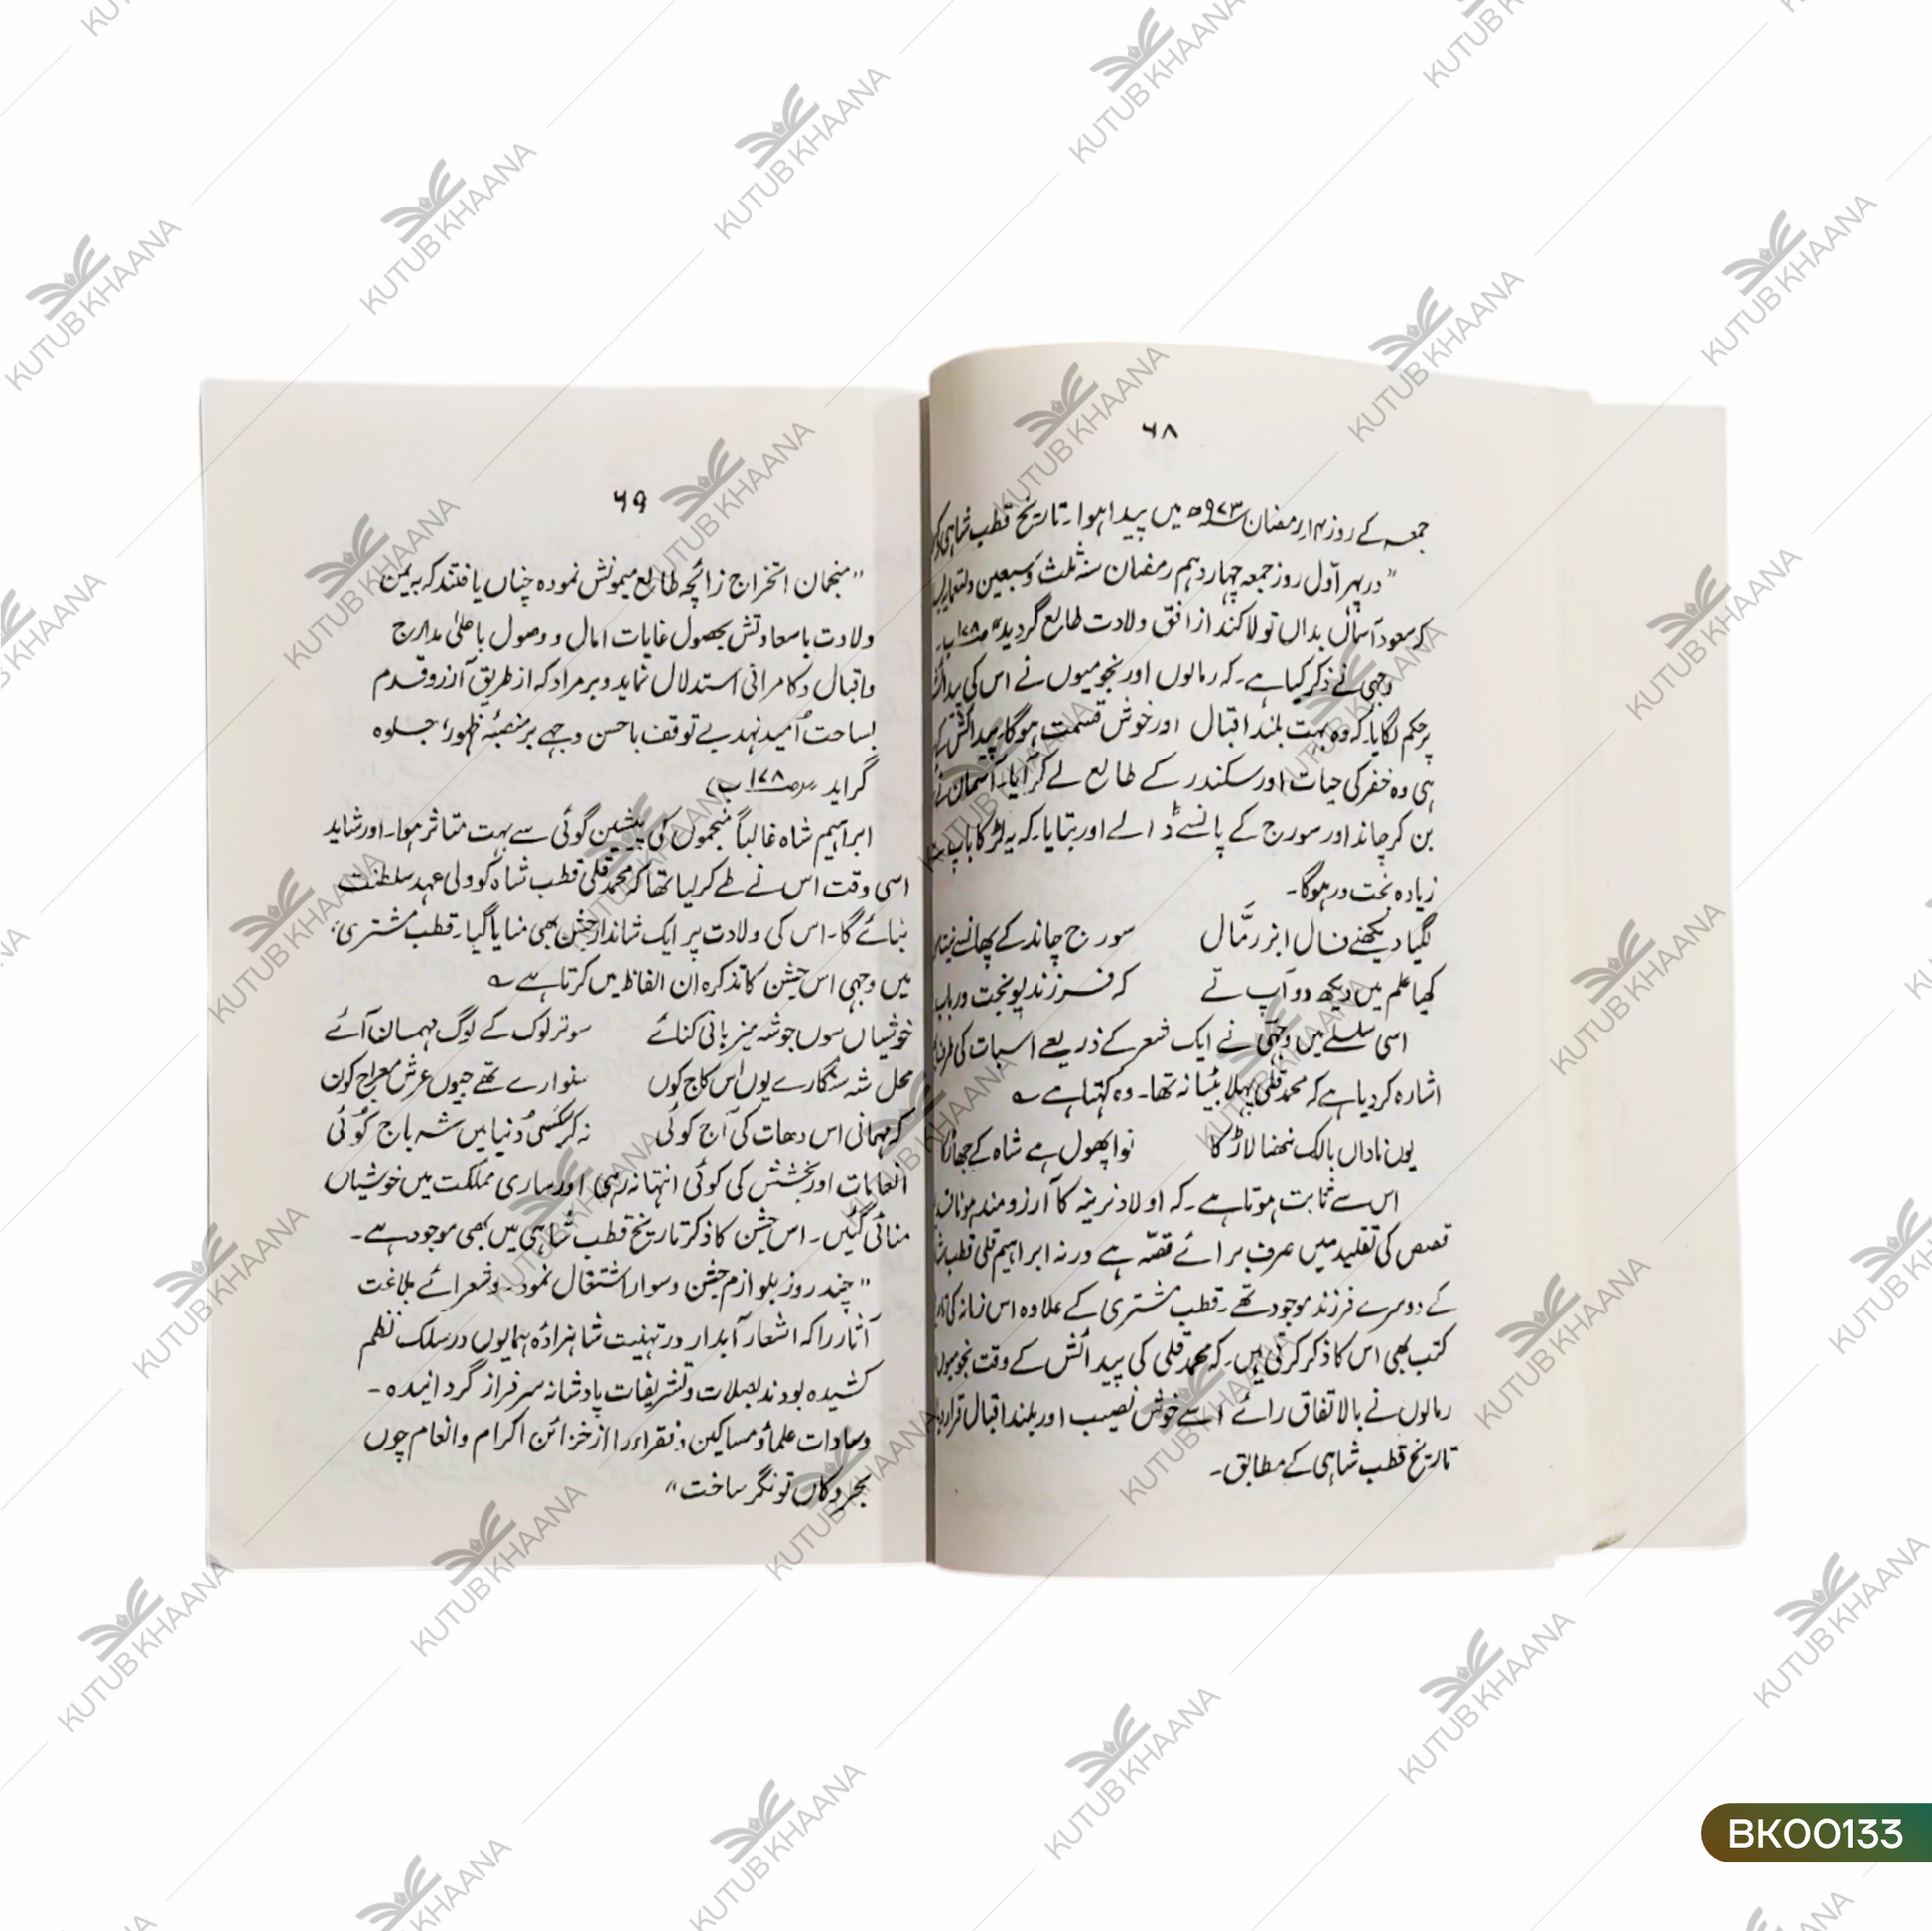 ۶۸
جمعہ کے روز ۱۴ رمضان ۹۷۳ھ میں پیدا ہوا۔ تاریخ قطب شاہی
"در پہر اول روز جمعہ چہاردہم رمضان سنہ ثلث و سبعین
کہ سعود آسماں بداں تولا کند از افق ولادت طالع گردید" صـ۱۷۸ ب۔
وجہی نے ذکر کیا ہے۔ کہ رمالوں اور نجومیوں نے اس کی
پر حکم لگایا۔ کہ وہ بہت بلند اقبال اور خوش قسمت ہوگا۔ پیدائش کے
ہی وہ خضر کی حیات اور سکندر کے طالع لے کر آیا۔ آسمان نے
بن کر چاند اور سورج کے پانسے ڈالے اور بتایا۔ کہ یہ لڑکا باپ سے
زیادہ بخت ور ہوگا۔
لگیا دیکھنے فال ابز رمّال سورج چاند کے پھانسے
کھیا علم میں دیکھ دو آپ تے کہ فرزند یو بخت ور باپ
اسی سلسلے میں وجہی نے ایک شعر کے ذریعے اسبات کی طرف
اشارہ کردیا ہے کہ محمد قلی پہلا بیٹا نہ تھا۔ وہ کہتا ہے ؎
یوں ناداں بالک ننھا لاڑ کا نوا پھول ہے شاہ کے جھاڑ کا
اس سے ثابت ہوتا ہے۔ کہ اولاد نرینہ کا آرزومند ہونا
قصص کی تقلید میں صرف برائے قصّہ ہے ورنہ ابراہیم قلی قطب
کے دوسرے فرزند موجود تھے۔ قطب مشتری کے علاوہ اس زمانہ کی
کتب بھی اس کا ذکر کرتی ہیں۔ کہ محمد قلی کی پیدائش کے وقت نجومیوں
رمالوں نے بالاتفاق رائے اسے خوش نصیب اور بلند اقبال قرار دیا
تاریخ قطب شاہی کے مطابق۔
۶۹
"منجمان استخراج زائچہ طالع میمونش نمودہ چناں یافتند کہ بہ یمن
ولادت با سعادتش بحصول غایات امال و وصول باعلیٰ مدارج
و اقبال و کامرانی استدلال نماید و ہر مراد کہ از طریق آرزو قدم
بساحت اُمید نہد بے توقف باحسن وجہے بر منصّۂ ظہور جلوہ
گراید (صـ۱۷۸ ب)
ابراہیم شاہ غالباً منجموں کی پیشین گوئی سے بہت متاثر ہوا۔ اور شاید
اسی وقت اس نے طے کرلیا تھا کہ محمد قلی قطب شاہ کو ولی عہد سلطنت
بنائے گا۔ اس کی ولادت پر ایک شاندار جشن بھی منایا گیا۔ قطب مشتری
میں وجہی اس جشن کا تذکرہ ان الفاظ میں کرتا ہے ؎
خوشیاں سوں جو شہ میزبانی کنائے سو تر لوک کے لوگ مہمان آئے
محل شہ سنگارے یوں اس کاج کوں سنوارے تھے جیوں عرش معراج کوں
کہ مہمانی اس دھات کی آج کوئی نہ کر کسّی دنیا میں شہ باج کوئی
انعامات اور بخشش کی کوئی انتہا نہ رہی اور ساری مملکت میں خوشیاں
منائی گئیں۔ اس جشن کا ذکر تاریخ قطب شاہی میں بھی موجود ہے۔
"چند روز بلوازم جشن و سوار اشتغال نمود۔ و شعرائے بلاغت
آثار را کہ اشعار آبدار در تہنیت شاہزادہ ہمایوں در سلک نظم
کشیدہ بودند بصلات و تشریفات پادشانہ سرفراز گردانیدہ۔
و سادات علماؤ مساکین و فقراء را از خزائن اکرام و انعام چوں
بحر و کاں تونگر ساخت"
KUTUB KHAANA
BK00133